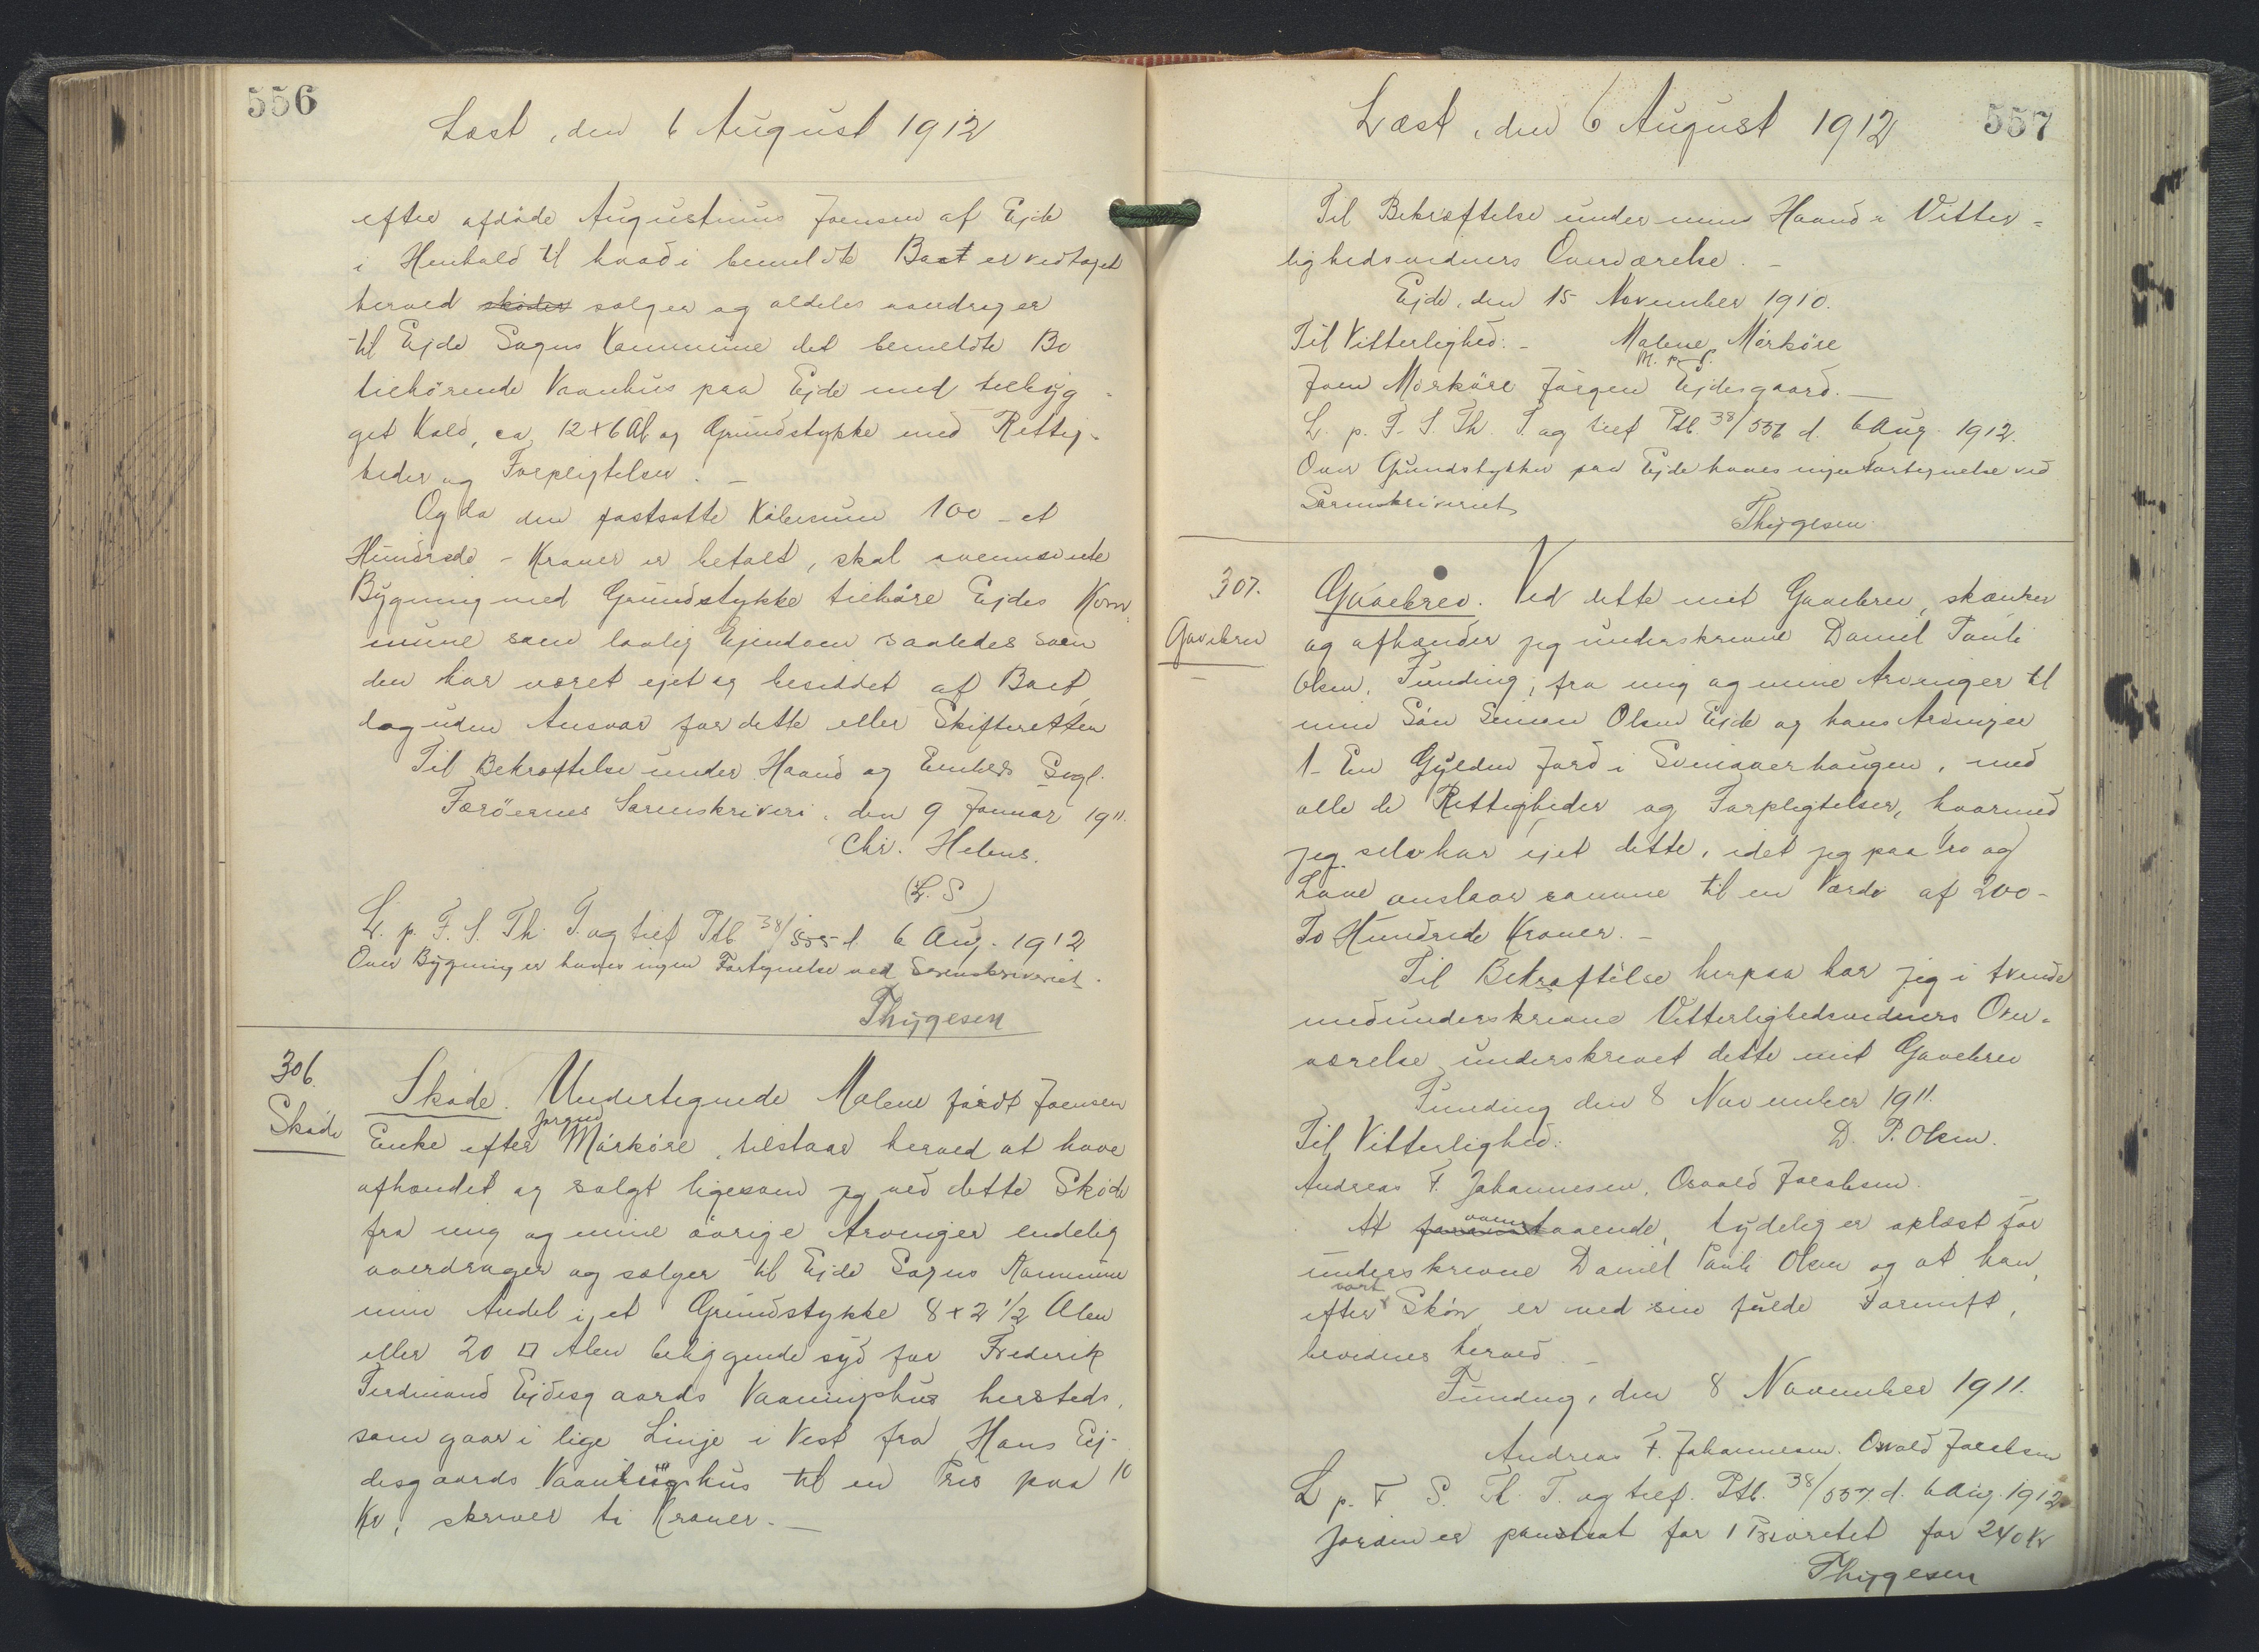 556
Læst, den 6 August 1912
efter afdøde Augustinus Joensen af Ejde
i Henhold til hvad i bemeldte Boet er vedtaget
herved skøder sælger og aldeles overdrager
til Ejde Sogns Kommune det bemeldte Bo
tilhørende Vaanhus paa Ejde med tilbyg-
get Kald, ca 12x6 Al og Grundstykke med Rettig-
heder og Forpligtelser. –
Og da den fastsatte Købesum 100 – et
Hundrede – Kroner er betalt, skal ovennævnte
Bygning med Grundstykke tilhøre Ejdes Kom-
mune som lovlig Ejendom saaledes som
den har været ejet og besiddet af Boet,
dog uden Ansvar for dette eller Skifteretten
Til Bekræftelse under Haand og Embeds Segl.
Færöernes Sorenskriveri, den 9 Januar 1911.
Chr. Helms.
(L. S)
L. p. F. S. Th. T. og tilf Ptb. 38/555 d. 6 Aug. 1912
Over Bygninger haves ingen Fortegnelse ved Sorenskriveriet.
Thygesen
306.
Skøde
Skøde. Undertegnede Malene født Joensen
Enke efter Jorgen Mörköre, tilstaar herved at have
afhændet og solgt ligesom jeg ved dette Skøde
fra mig og mine övrige Arvinger endelig
overdrager og sælger til Ejde Sogns Kommune
min Andel i et Grundstykke 8 x 2 1/2 Alen
eller 20 □ Alen beliggende syd for Frederik
Ferdinand Ejdesgaards Vaaningshus hersteds,
som gaar i lige Linje i Vest fra Hans Ej-
desgaards Vaaningshus til en Pris paa 10
Kr, skriver ti Kroner. –
Læst, den 6 August 1912
557
Til Bekræftelse under min Haand i Vitter-
lighedsvidners Overværelse. –
Ejde, den 15 November 1910.
Til Vitterlighed: – Malene Mörköre
m. p. f.
Joen Mörköre Jörgen Ejdesgaard. –
L. p. F. S. Th. T. og tilf Ptb. 38/556 d. 6 Aug. 1912.
Over Grundstykker paa Ejde haves ingen Fortegnelse ved
Sorenskriveriet
Thygesen
307.
Gavebrev
Gavebrev. Ved dette mit Gavebrev, skænker
og afhænder jeg underskrevne Daniel Pauli
Olsen, Funding, fra mig og mine Arvinger til
min Sön Simon Olsen Ejde og hans Arvinger
1 – En Gylden Jord i , med
alle de Rettigheder og Forpligtelser, hvormed
jeg selv har ejet dette, idet jeg paa Tro og
Love anslaar samme til en Værdi af 200 –
To Hundrede Kroner. –
Til Bekræftelse herpaa har jeg i tvende
medunderskrevne Vitterlighedsvidners Over-
værelse underskrevet dette mit Gavebrev
Funding den 8 November 1911.
Til Vitterlighed: D. P. Olsen.
Andreas F. Johannesen, Osvald Jacobsen.
At ovenstaaende, tydelig er oplæst for
underskrevne Daniel Pauli Olsen og at han,
efter vort Skön, er ved sin fulde Fornuft,
bevidnes herved. –
Funding, den 8 November 1911.
Andreas F. Johannesen. Osvald Jacobsen
L. p. F. S. Th. T. og tilf. Ptb. 38/557 d. 6 Aug. 1912
Jorden er pantsat for 1 Prioritet for 240 Kr
Thygesen